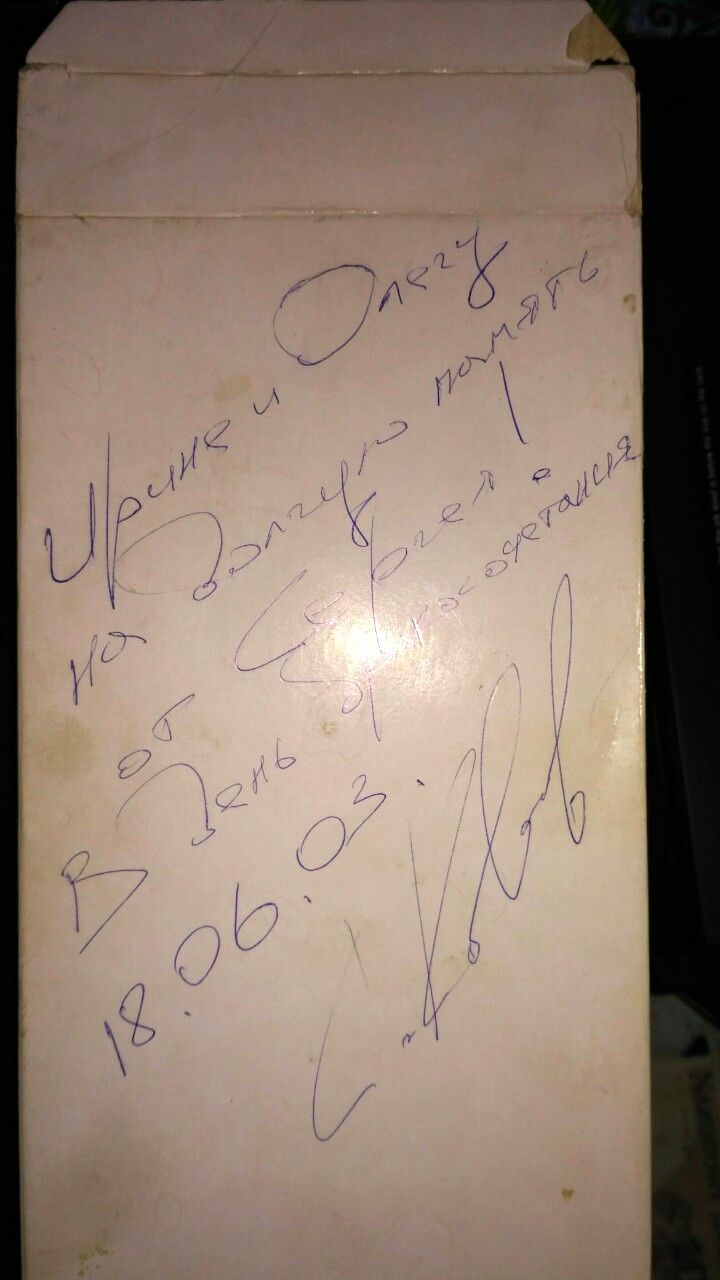 Ирине и Олегу
на долгую память
от Сергея !
В День бракосочетания
18.06.03.